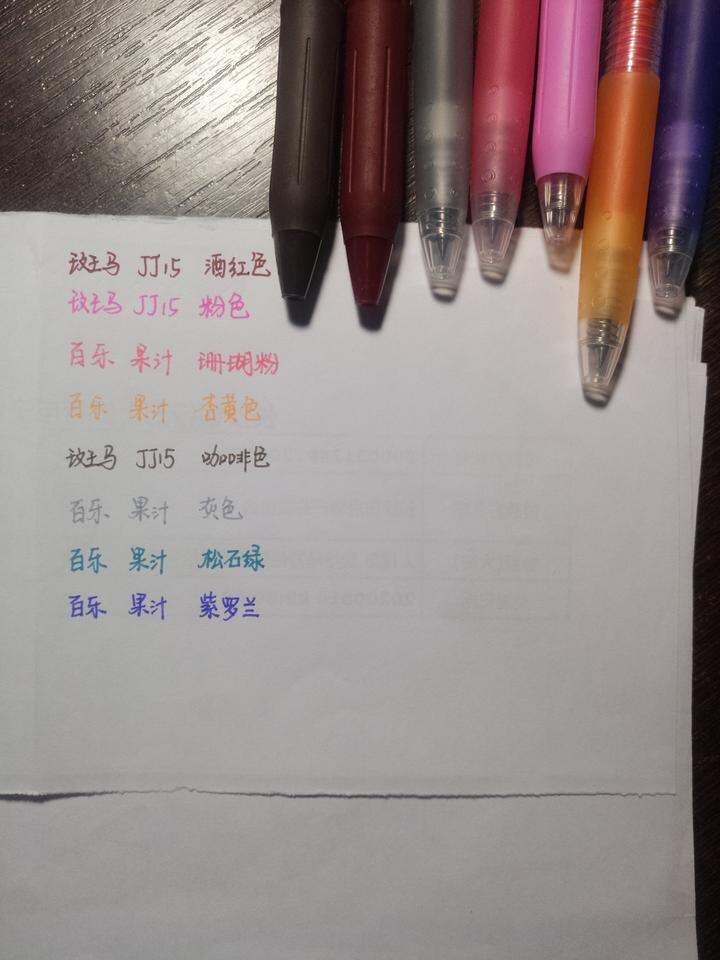 斑马 JJ15 酒红色
斑马 JJ15 粉色
百乐 果汁 珊瑚粉
百乐 果汁 杏黄色
斑马 JJ15 咖啡色
百乐 果汁 灰色
百乐 果汁 松石绿
百乐 果汁 紫罗兰